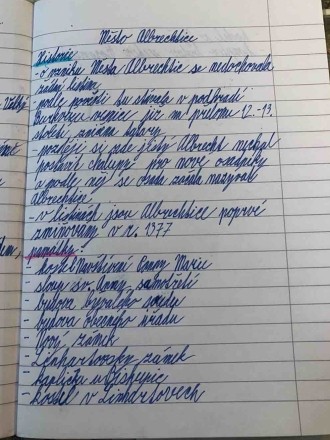 Město Albrechtice
Historie
- o vzniku Města Albrechtic se nedochovala
žádná listina
- podle pověsti tu stávala v podhradí
vesnice již na přelomu 12.-13.
století, zvaná
- později si zde jistý Albrecht nechal
postavit chalupy pro nové osadníky
a podle něj se osada začala nazývat
Albrechtice
- v listinách jsou Albrechtice poprvé
zmiňovány v r. 1377
památky:
- kostel Navštívení Panny Marie
- sloup sv. Anny samotřetí
- budova bývalého soudu
- budova obecního úřadu
- Nový zámek
- Linhartovský zámek
- kaplička u
- kostel v Linhartovech